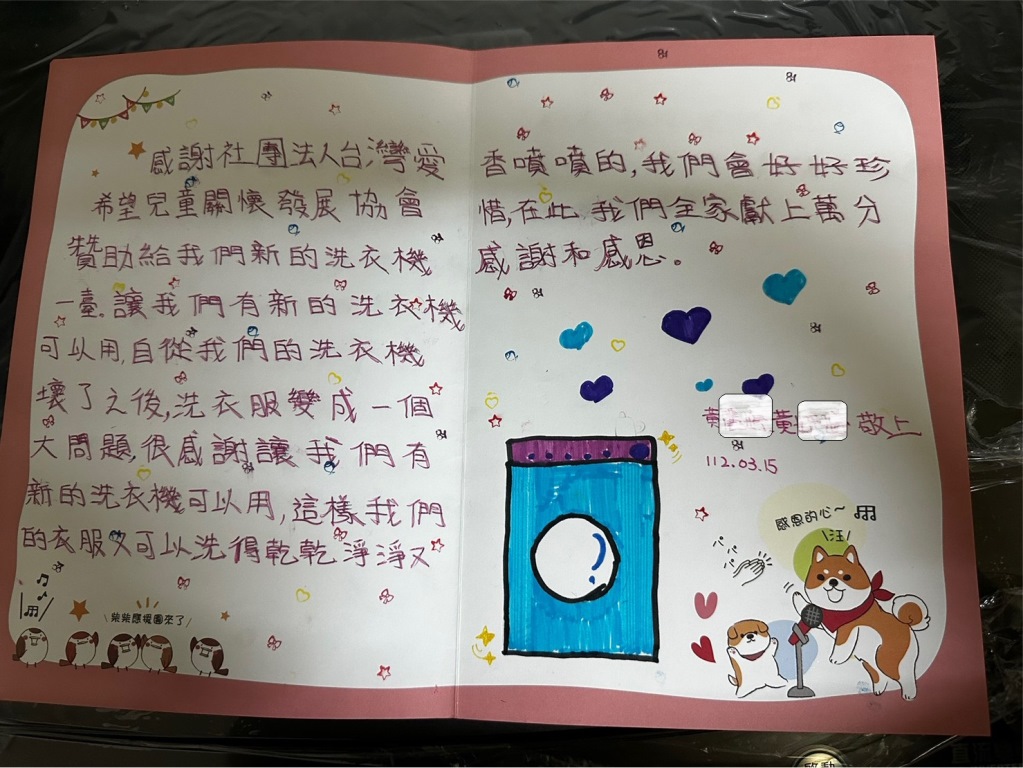 感謝社團法人台灣愛
希望兒童關懷發展協會
贊助給我們新的洗衣機
一臺。讓我們有新的洗衣機
可以用,自從我們的洗衣機
壞了之後,洗衣服變成一個
大問題,很感謝讓我們有
新的洗衣機可以用,這樣我們
的衣服又可以洗得乾乾淨淨又
柴柴應援團來了
香噴噴的,我們會好好珍
惜,在此,我們全家獻上萬分
感謝和感恩。
黃 黃 敬上
112.03.15
感恩的心~
汪